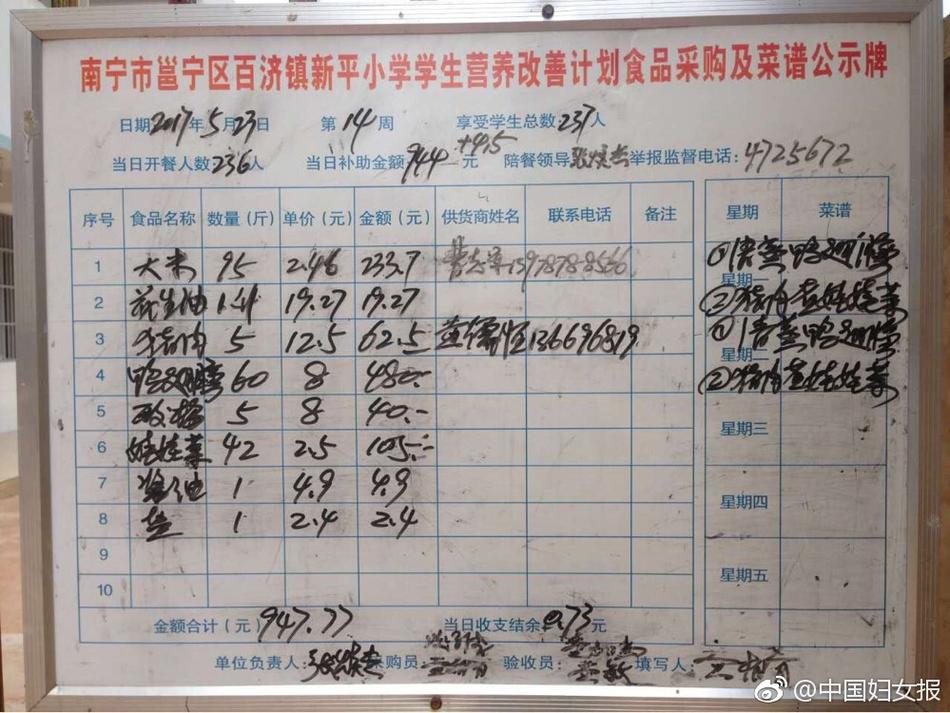 南宁市邕宁区百济镇新平小学学生营养改善计划食品采购及菜谱公示牌
日期2017年5月23日 第14周 享受学生总数237人
当日开餐人数:236人 当日补助金额944+4.5元 陪餐领导 举报监督电话:4725672
序号 食品名称 数量(斤) 单价(元) 金额(元) 供货商姓名 联系电话 备注 星期 菜谱
1 大米 95 2.46 233.7 星期一
2 花生油 19.27 19.27 ②猪肉煮娃娃菜
3 猪肉 5 12.5 62.5 星期二
4 60 8 480.- ②猪肉煮娃娃菜
5 5 8 40.-
6 娃娃菜 42 2.5 105.- 星期三
7 酱油 1 4.9 4.9
8 盐 1 2.4 2.4 星期四
9
10 星期五
金额合计(元)947.77 当日收支结余:0.73元
单位负责人: 采购员: 验收员: 填写人:
@中国妇女报